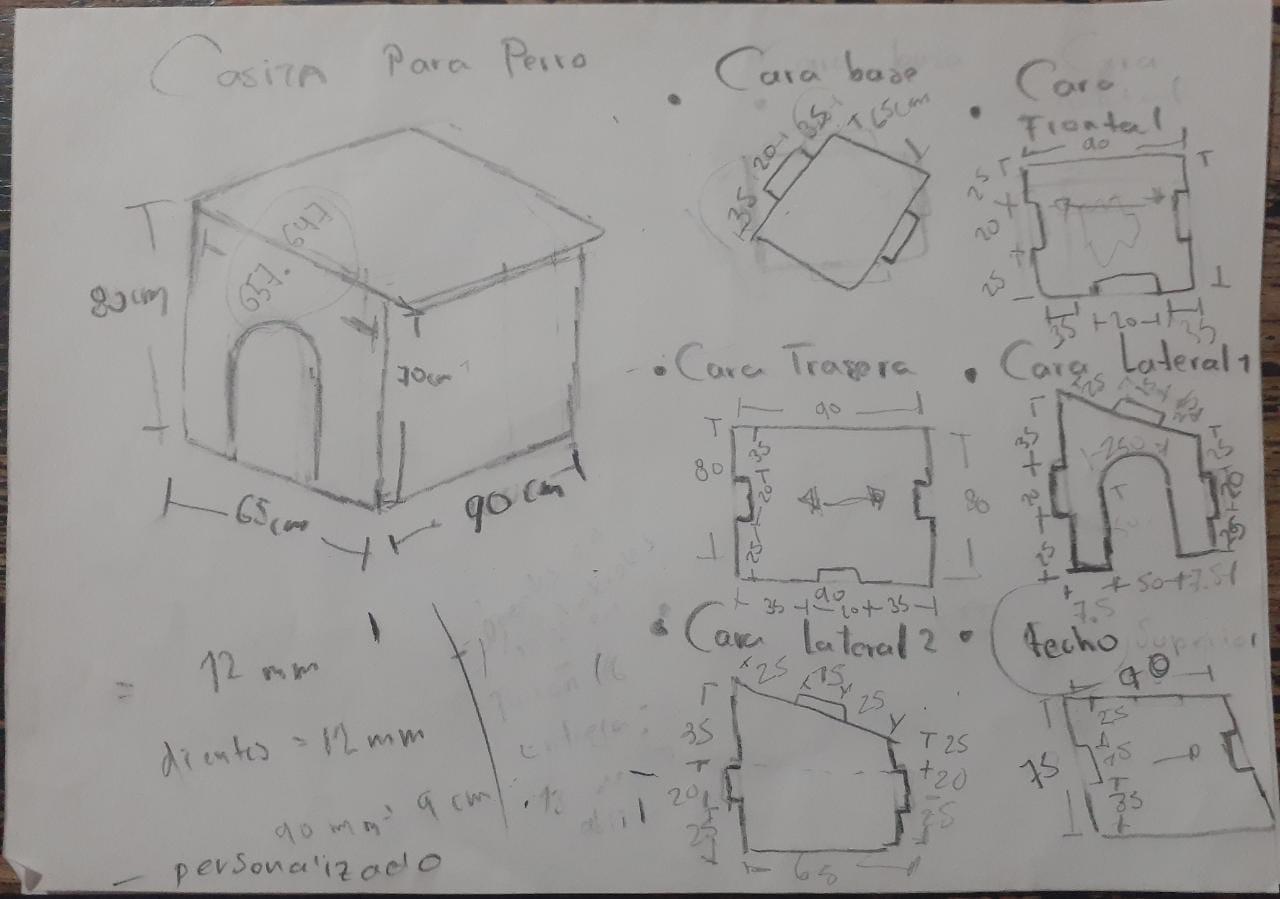 Casita Para Perro
80cm
647
657.
70cm
65cm
90cm
= 12 mm
dientes = 12 mm
90 mm = 9 cm
— personalizado
• Cara base
35
20
35
65cm
• Cara
Frontal
90
25
20
25
35
20
35
• Cara Trasera
90
80
35
20
25
80
90
35
20
35
• Cara Lateral 1
25
35
20
25
250
25
20
25
7.5
50
7.5
• Cara lateral 2
25
15
25
35
20
25
25
20
25
65
• techo
Superior
90
75
25
15
35